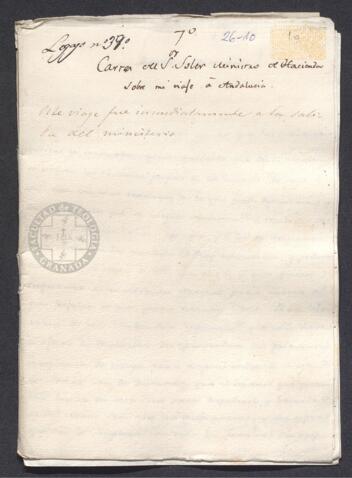 Legajo nº 39º 7º 26-10 1a
Carta del Sr. Soler Ministro de Hacienda
sobre mi viaje à Andalucia.
Este viaje fue inmediatamente a la sali-
da del ministerio
FACULTAD DE TEOLOGIA
GRANADA